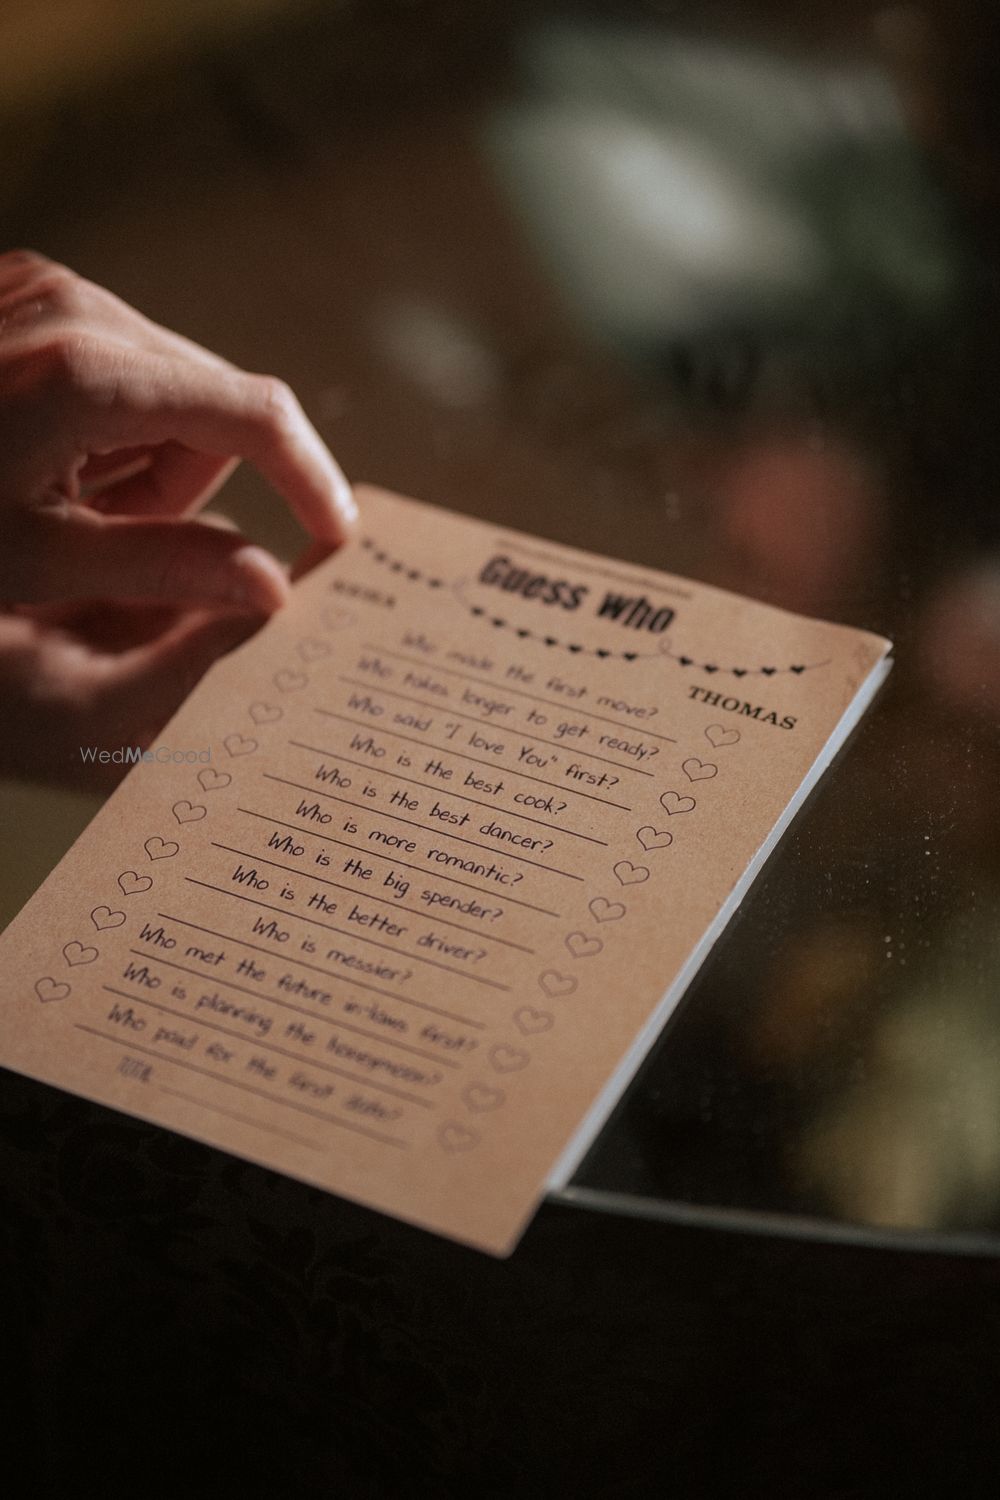 Guess who
THOMAS
Who made the first move?
Who takes longer to get ready?
Who said "I love You" first?
Who is the best cook?
Who is the best dancer?
Who is more romantic?
Who is the big spender?
Who is the better driver?
Who is messier?
Who met the future in-laws first?
Who is planning the honeymoon?
Who paid for the first date?
WedMeGood